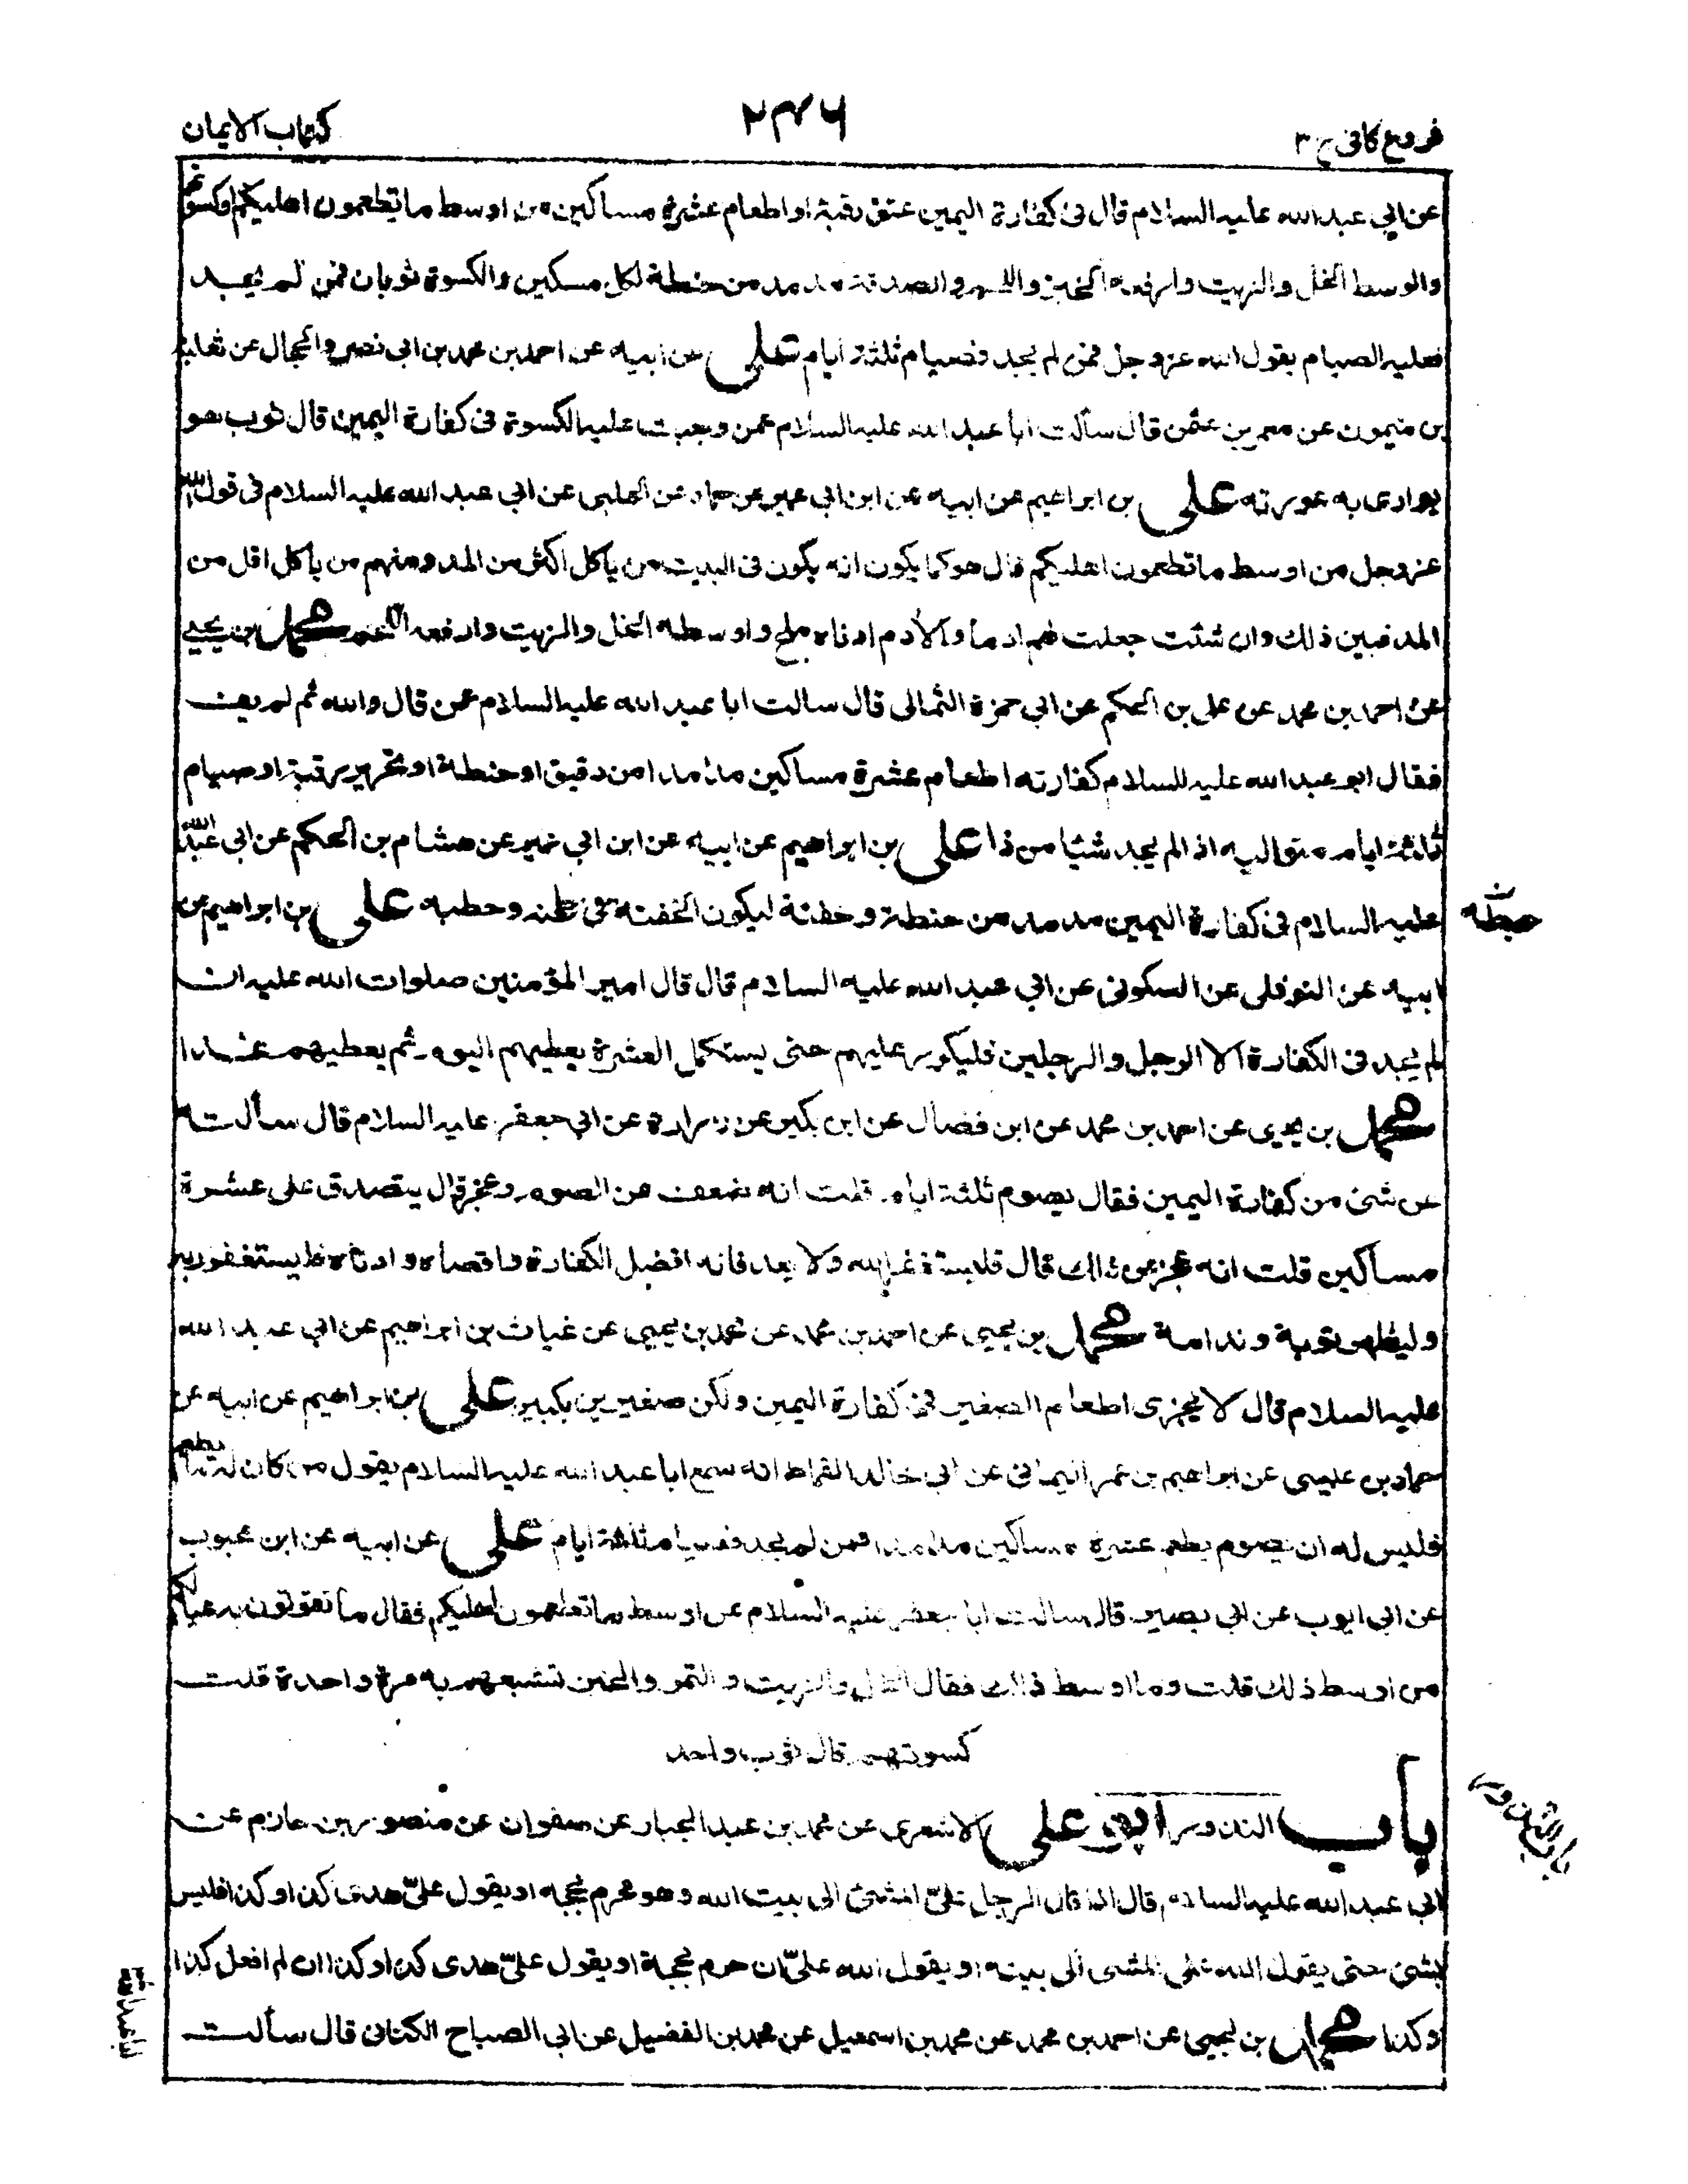 فروع كافى ج ٣
٢٣٦
كتاب الايمان
عن ابي عبد الله عليه السلام قال فى كفارة اليمين عتق رقبة او اطعام عشرة مساكين من اوسط ما تطعمون اهليكم او كسوتهم
والوسط الخل والزيت وارفعه الخبز واللحم والصدقة مد مد من حنطة لكل مسكين والكسوة ثوبان فمن لم يجد
فعليه الصيام يقول الله عز وجل فمن لم يجد فصيام ثلثة ايام على عن ابيه عن احمد بن محمد بن ابى نصر والحجال عن ثعلبة
بن ميمون عن معمر بن عثمن قال سألت ابا عبد الله عليه السلام عمن وجبت عليه الكسوة فى كفارة اليمين قال ثوب هو
يوارى به عورته على بن ابراهيم عن ابيه عن ابن ابى عمير عن حماد عن الحلبى عن ابي عبد الله عليه السلام فى قول الله
عز وجل من اوسط ما تطعمون اهليكم قال هو كما يكون انه يكون فى البيت من ياكل اكثر من المد ومنهم من ياكل اقل من
المد فبين ذلك وان شئت جعلت لهم ادما والادم ادناه ملح واوسطه الخل والزيت وارفعه اللحم محمد بن يحيى
عن احمد بن محمد عن على بن الحكم عن ابي حمزة الثمالى قال سالت ابا عبد الله عليه السلام عمن قال والله ثم لم يف
فقال ابو عبد الله عليه للسلام كفارته اطعام عشرة مساكين مدا مدا من دقيق او حنطة او تحرير رقبة او صيام
ثلثة ايام متواليه اذا لم يجد شئيا من ذا على بن ابراهيم عن ابيه عن ابن ابي عمير عن هشام بن الحكم عن ابى عبد الله
عليه السلام فى كفارة اليمين مد مد من حنطة وحفنة ليكون الحفنة فى طحنه وحطبه على بن ابراهيم عن
ابيه عن النوفلى عن السكونى عن ابي عبد الله عليه السلام قال قال امير المؤمنين صلوات الله عليه ان
لم يجد فى الكفارة الا الرجل والرجلين فليكرر عليهم حتى يستكمل العشرة يعطيهم اليوم ثم يعطيهم غدا
محمد بن يحيى عن احمد بن محمد عن ابن فضال عن ابن بكير عن زرارة عن ابي جعفر عليه السلام قال سألته
عن شئ من كفارة اليمين فقال يصوم ثلثة ايام قلت انه ضعف عن الصوم وعجز قال يتصدق على عشرة
مساكين قلت انه عجز عن ذلك قال فليستغفر الله ولا يعد فانه افضل الكفارة واقصاه وادناه فليستغفر ربه
وليظهر توبة وندامة محمد بن يحيى عن احمد بن محمد عن محمد بن يحيى عن غياث بن ابراهيم عن ابي عبد الله
عليه السلام قال لا يجزى اطعام الصغير فى كفارة اليمين ولكن صغيرين بكبير على بن ابراهيم عن ابيه عن
حماد بن عيسى عن ابراهيم بن عمر اليمانى عن ابى خالد القماط انه سمع ابا عبد الله عليه السلام يقول من كان له ما يطعم
فليس له ان يصوم يطعم عشرة مساكين مدا مدا فمن لم يجد فصيام ثلثة ايام على عن ابيه عن ابن محبوب
عن ابى ايوب عن ابى بصير قال سالت ابا جعفر عليه السلام عن اوسط ما تطعمون اهليكم فقال ما تقوتون به عيالكم
من اوسط ذلك قلت وما اوسط ذلك فقال الخل والزيت والتمر والخبز تشبعهم به مرة واحدة قلت
كسوتهم قال ثوب واحد
باب النذور ابو على الاشعرى عن محمد بن عبد الجبار عن صفوان عن منصور بن حازم عن
ابي عبد الله عليه السلام قال اذا قال الرجل علىّ المشى الى بيت الله وهو محرم بحجه او يقول علىّ هدى كذا وكذا فليس
بشئ حتى يقول لله على المشى الى بيته او يقول لله علىّ ان حرم بحجة او يقول علىّ هدى كذا وكذا ان لم افعل كذا
وكذا محمد بن يحيى عن احمد بن محمد عن محمد بن اسمعيل عن محمد بن الفضيل عن ابى الصباح الكنانى قال سألت
باب النذور